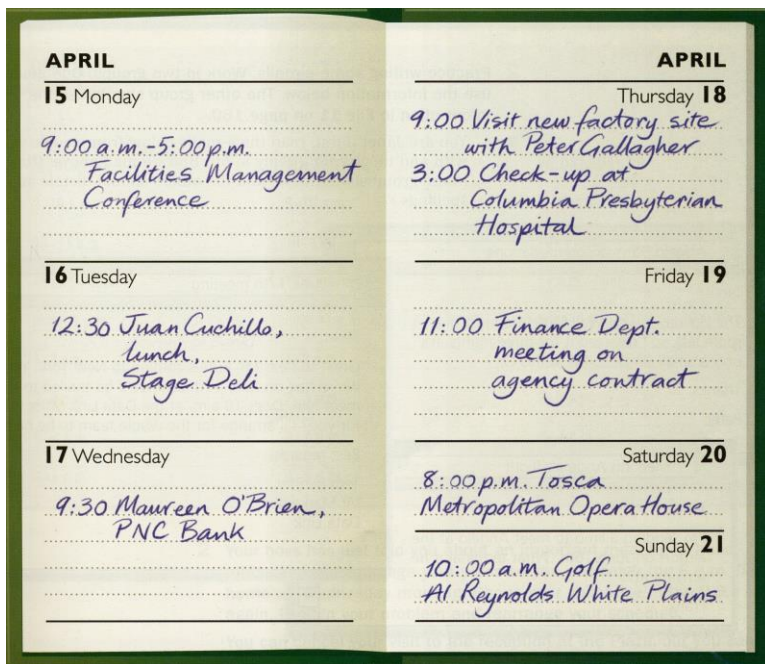 APRIL
15 Monday
9:00 a.m.-5:00 p.m.
Facilities Management
Conference
16 Tuesday
12:30 Juan Cuchillo,
lunch,
Stage Deli
17 Wednesday
9:30 Maureen O'Brien,
PNC Bank
APRIL
Thursday 18
9:00 Visit new factory site
with Peter Gallagher
3:00 Check-up at
Columbia Presbyterian
Hospital
Friday 19
11:00 Finance Dept.
meeting on
agency contract
Saturday 20
8:00 p.m. Tosca
Metropolitan Opera House
Sunday 21
10:00 a.m. Golf
Al Reynolds White Plains